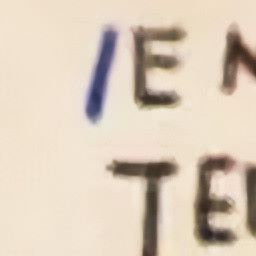 /EN
TEU